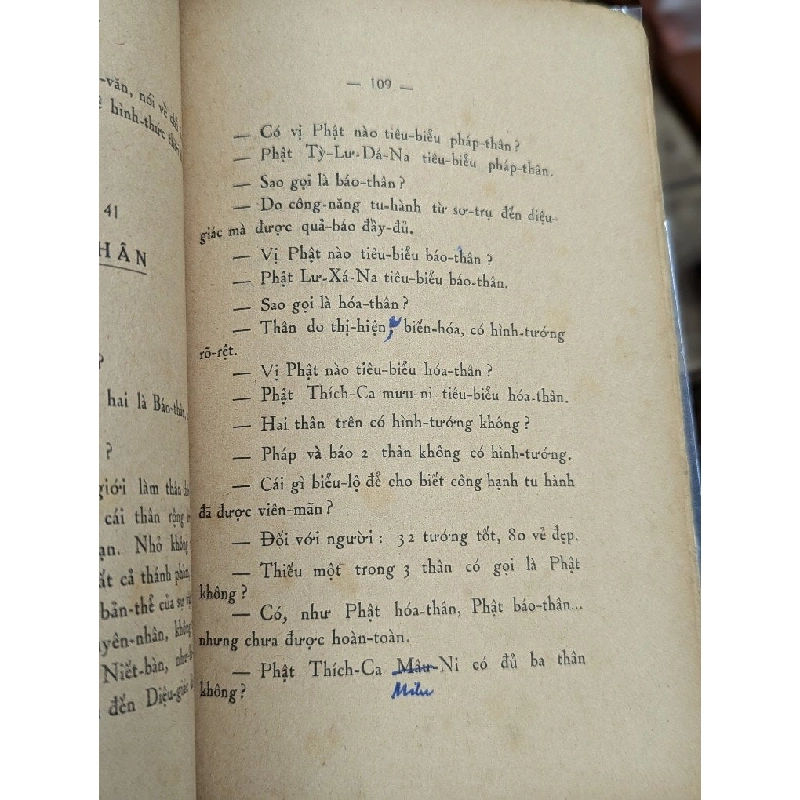 -văn, nói về
hình-thức
41
HÂN
?
hai là Báo-thân,
?
giới làm thân
cái thân rộng
ạn. Nhỏ không
ất cả thánh
bản-thể của sự
yên-nhân, không
Niết-bàn, như
đến Diệu-giác
— 109 —
— Có vị Phật nào tiêu-biểu pháp-thân ?
— Phật Tỳ-Lư-Dá-Na tiêu-biểu pháp-thân.
— Sao gọi là báo-thân ?
— Do công-năng tu-hành từ sơ-trụ đến diệu-
giác mà được quả-báo đầy-đủ.
— Vị Phật nào tiêu-biểu báo-thân ?
— Phật Lư-Xá-Na tiêu-biểu báo-thân.
— Sao gọi là hóa-thân ?
— Thân do thị-hiện, biến-hóa, có hình-tướng
rõ-rệt.
— Vị Phật nào tiêu-biểu hóa-thân ?
— Phật Thích-Ca mưu-ni tiêu-biểu hóa-thân.
— Hai thân trên có hình-tướng không ?
— Pháp và báo 2 thân không có hình-tướng.
— Cái gì biểu-lộ để cho biết công hạnh tu hành
đã được viên-mãn ?
— Đối với người : 32 tướng tốt, 80 vẻ đẹp.
— Thiếu một trong 3 thân có gọi là Phật
không ?
— Có, như Phật hóa-thân, Phật báo-thân...
nhưng chưa được hoàn-toàn.
— Phật Thích-Ca Mâu-Ni có đủ ba thân
không ?